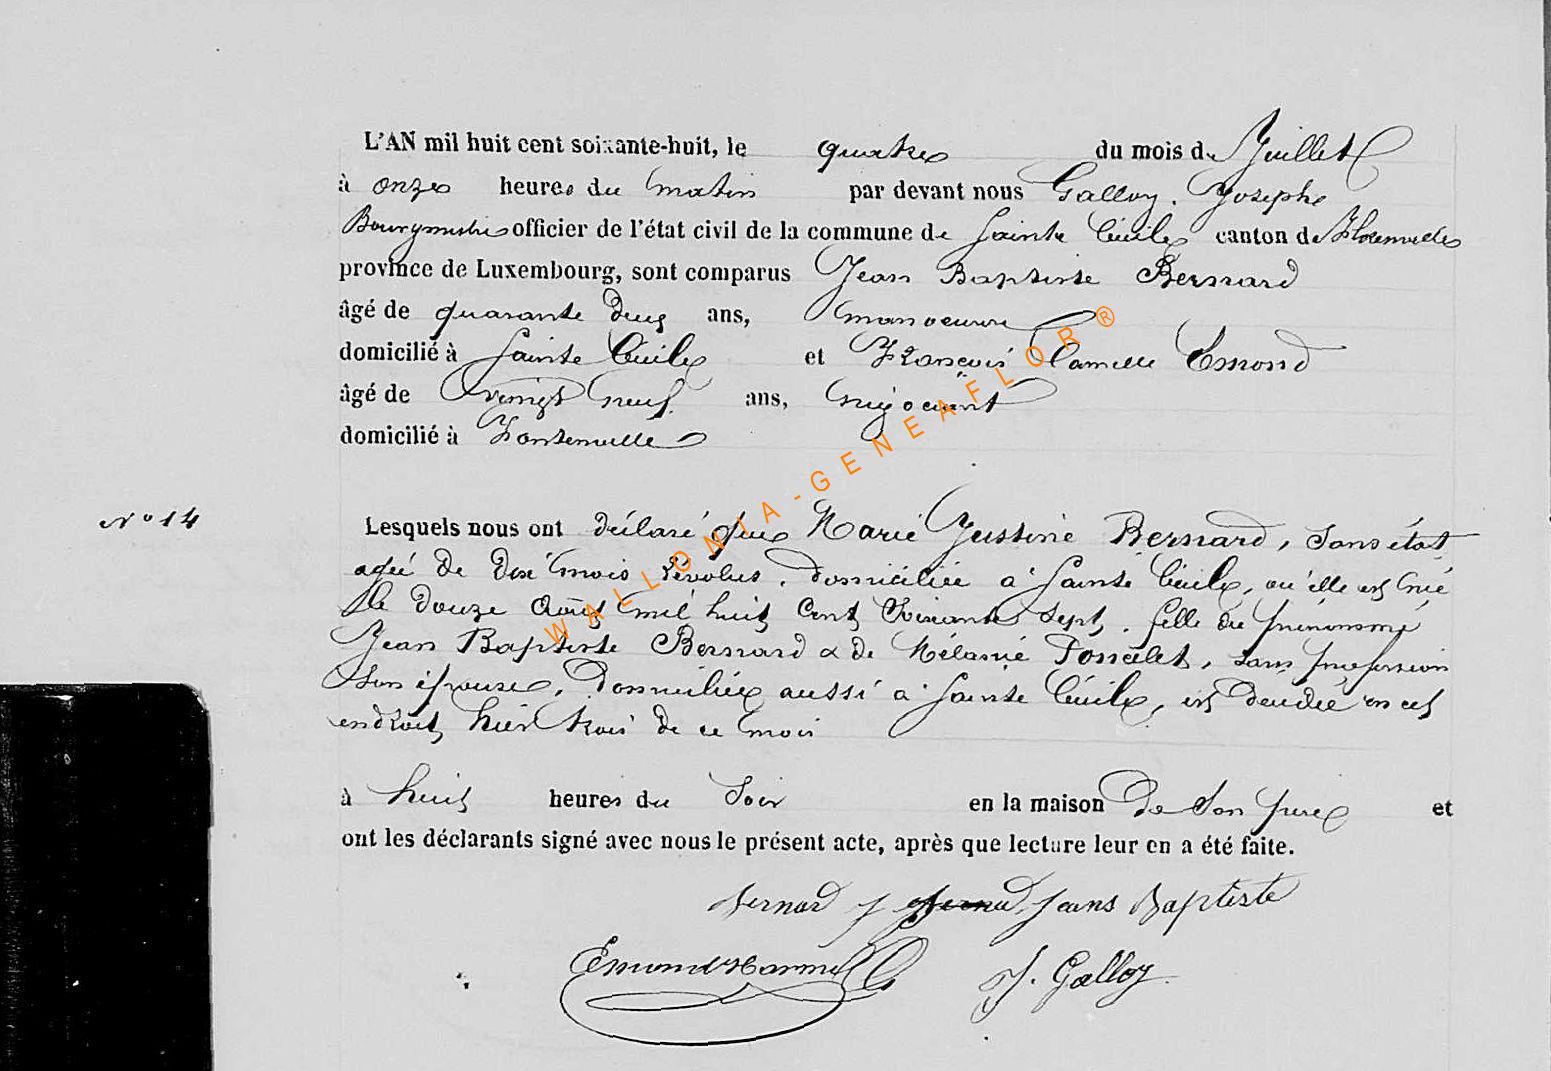 L'AN mil huit cent soixante-huit, le quatre du mois de Juillet
à onze heures du matin par devant nous Galloy. Josephe
Bourgmestre officier de l'état civil de la commune de Sainte Cécile canton de Florenville
province de Luxembourg, sont comparus Jean Baptiste Bernard
âgé de quarante deux ans, manoeuvre
domicilié à Sainte Cécile et François Camille Emond
âgé de vingt neuf ans, négociant
domicilié à Fontenoille
N° 14
Lesquels nous ont déclaré que Marie Justine Bernard, sans état
agée de dix mois révolus, domiciliée à Sainte Cécile, où elle est née
le douze Août mil huit cent soixante sept, fille du prénommé
Jean Baptiste Bernard & de Mélanie Poncelet, sans profession
son épouse, domiciliée aussi à Sainte Cécile, est décédée en cet
endroit, hier trois de ce mois
à huit heures du soir en la maison de son père et
ont les déclarants signé avec nous le présent acte, après que lecture leur en a été faite.
bernard j jeans Baptiste
Emond J. Galloy
WALLONIA-GENEAFLOR®